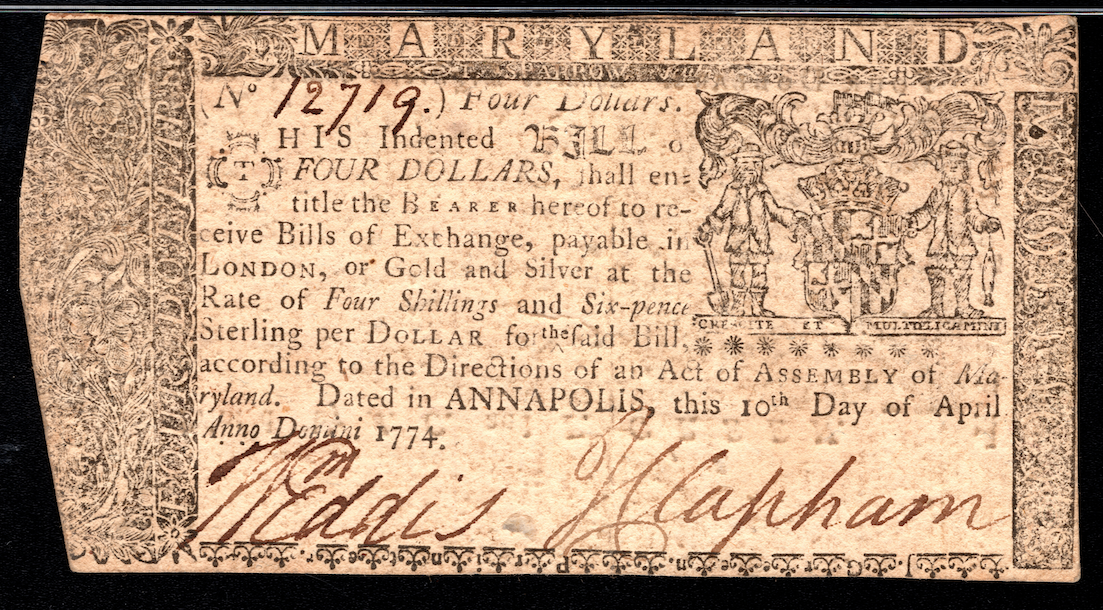 MARYLAND
T. SPARROW
(No 12719.) Four Dollars.
THIS Indented BILL o
FOUR DOLLARS, ſhall en=
title the BEARER hereof to re-
ceive Bills of Exchange, payable in
LONDON, or Gold and Silver at the
Rate of Four Shillings and Six-pence
Sterling per DOLLAR for the ſaid Bill,
according to the Directions of an Act of ASSEMBLY of Ma-
ryland. Dated in ANNAPOLIS, this 10th Day of April
Anno Domini 1774.
CRESCITE ET MULTIPLICAMINI
Wm Eddis J Clapham
FOUR DOLLARS
IV DOLLARS